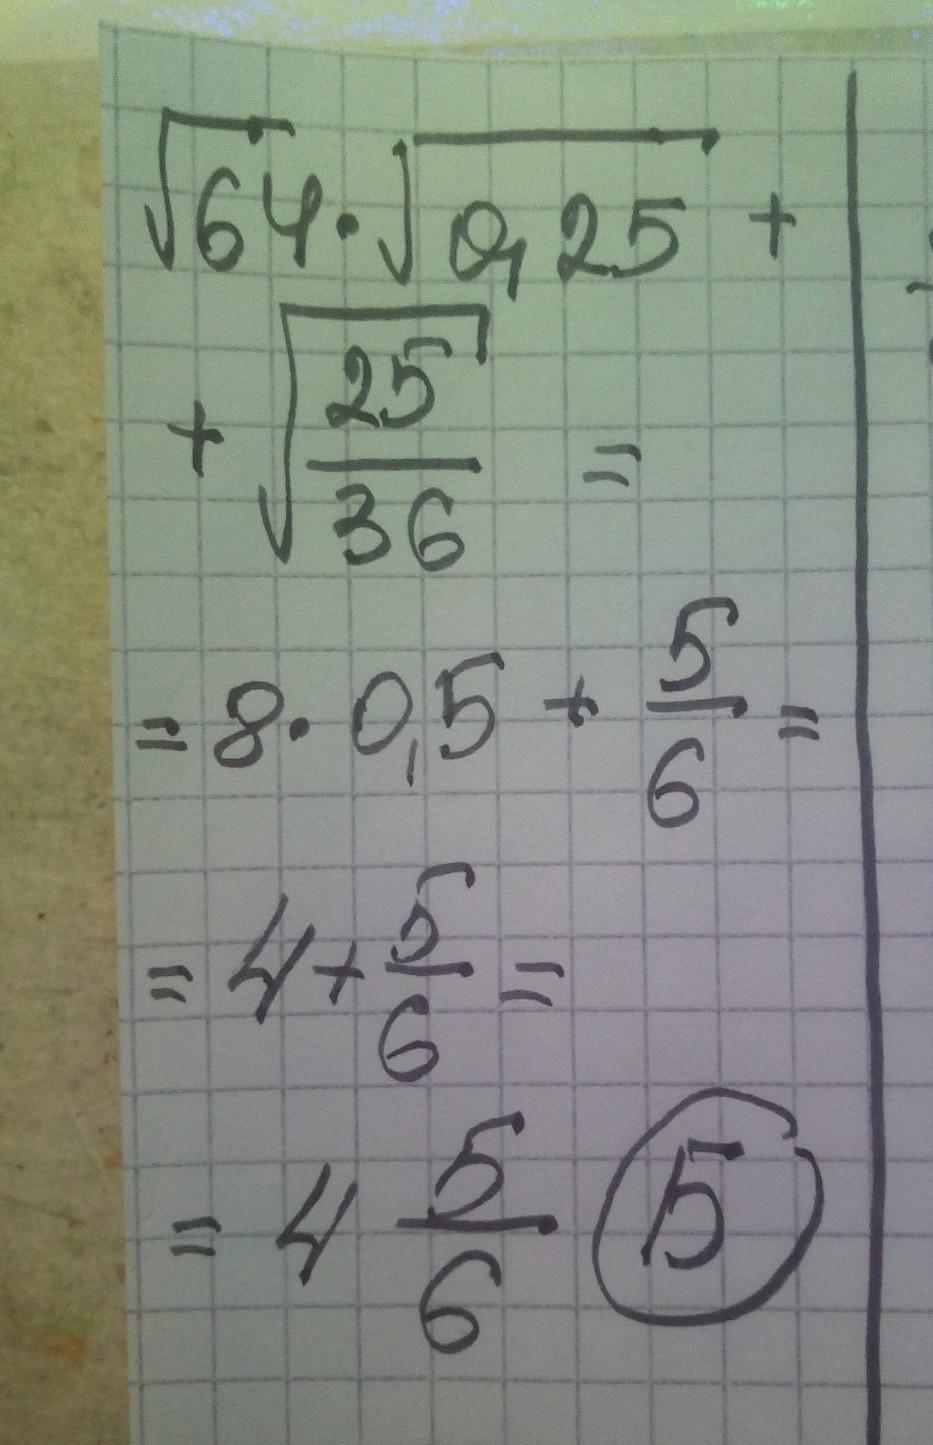 √64·√0,25 +
+ √25/36 =
= 8· 0,5 + 5/6 =
= 4+5/6 =
= 4 5/6 5